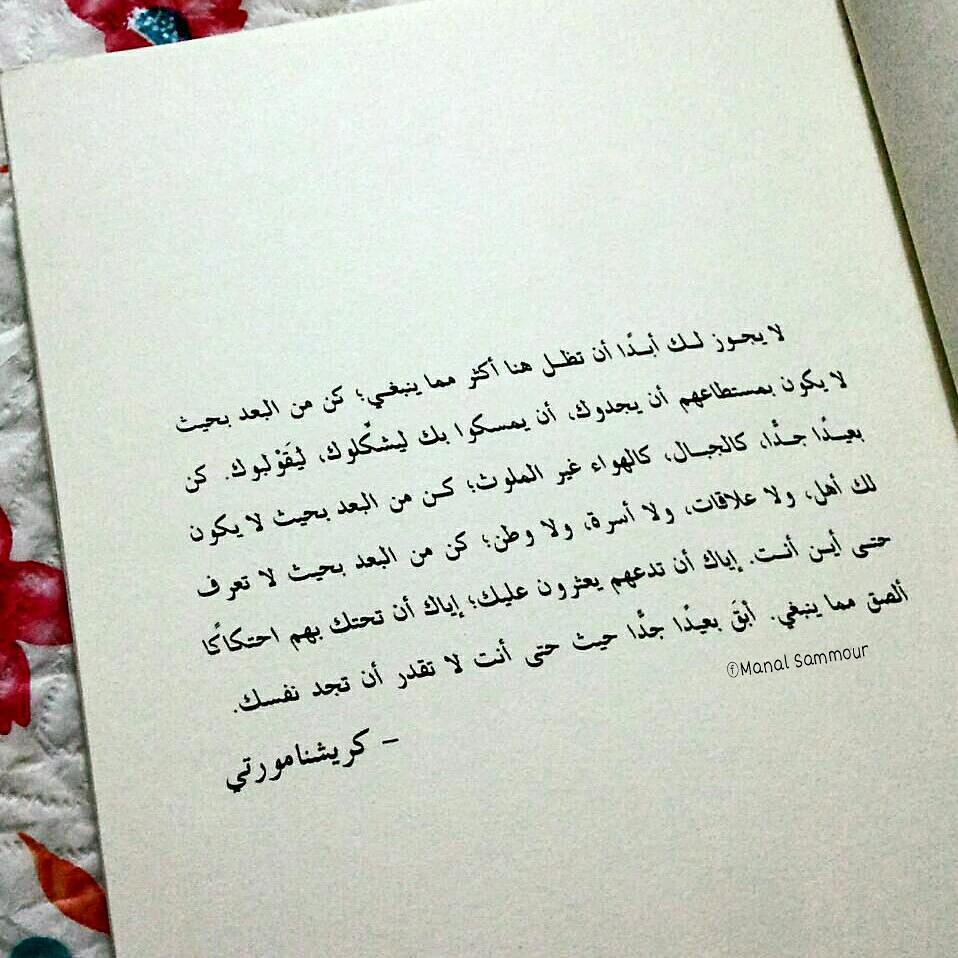 لا يجوز لك أبدًا أن تظل هنا أكثر مما ينبغي؛ كن من البعد بحيث
لا يكون بمستطاعهم أن يجدوك، أن يمسكوا بك ليشكِّلوك، ليُقَوْلبوك. كن
بعيدًا جدًّا، كالجبال، كالهواء غير الملوث؛ كن من البعد بحيث لا يكون
لك أهل، ولا علاقات، ولا أسرة، ولا وطن؛ كن من البعد بحيث لا تعرف
حتى أين أنت. إياك أن تدعهم يعثرون عليك؛ إياك أن تحتك بهم احتكاكًا
ألصق مما ينبغي. أبقَ بعيدًا جدًّا حيث حتى أنت لا تقدر أن تجد نفسك.
– كريشنامورتي
ⓕManal Sammour